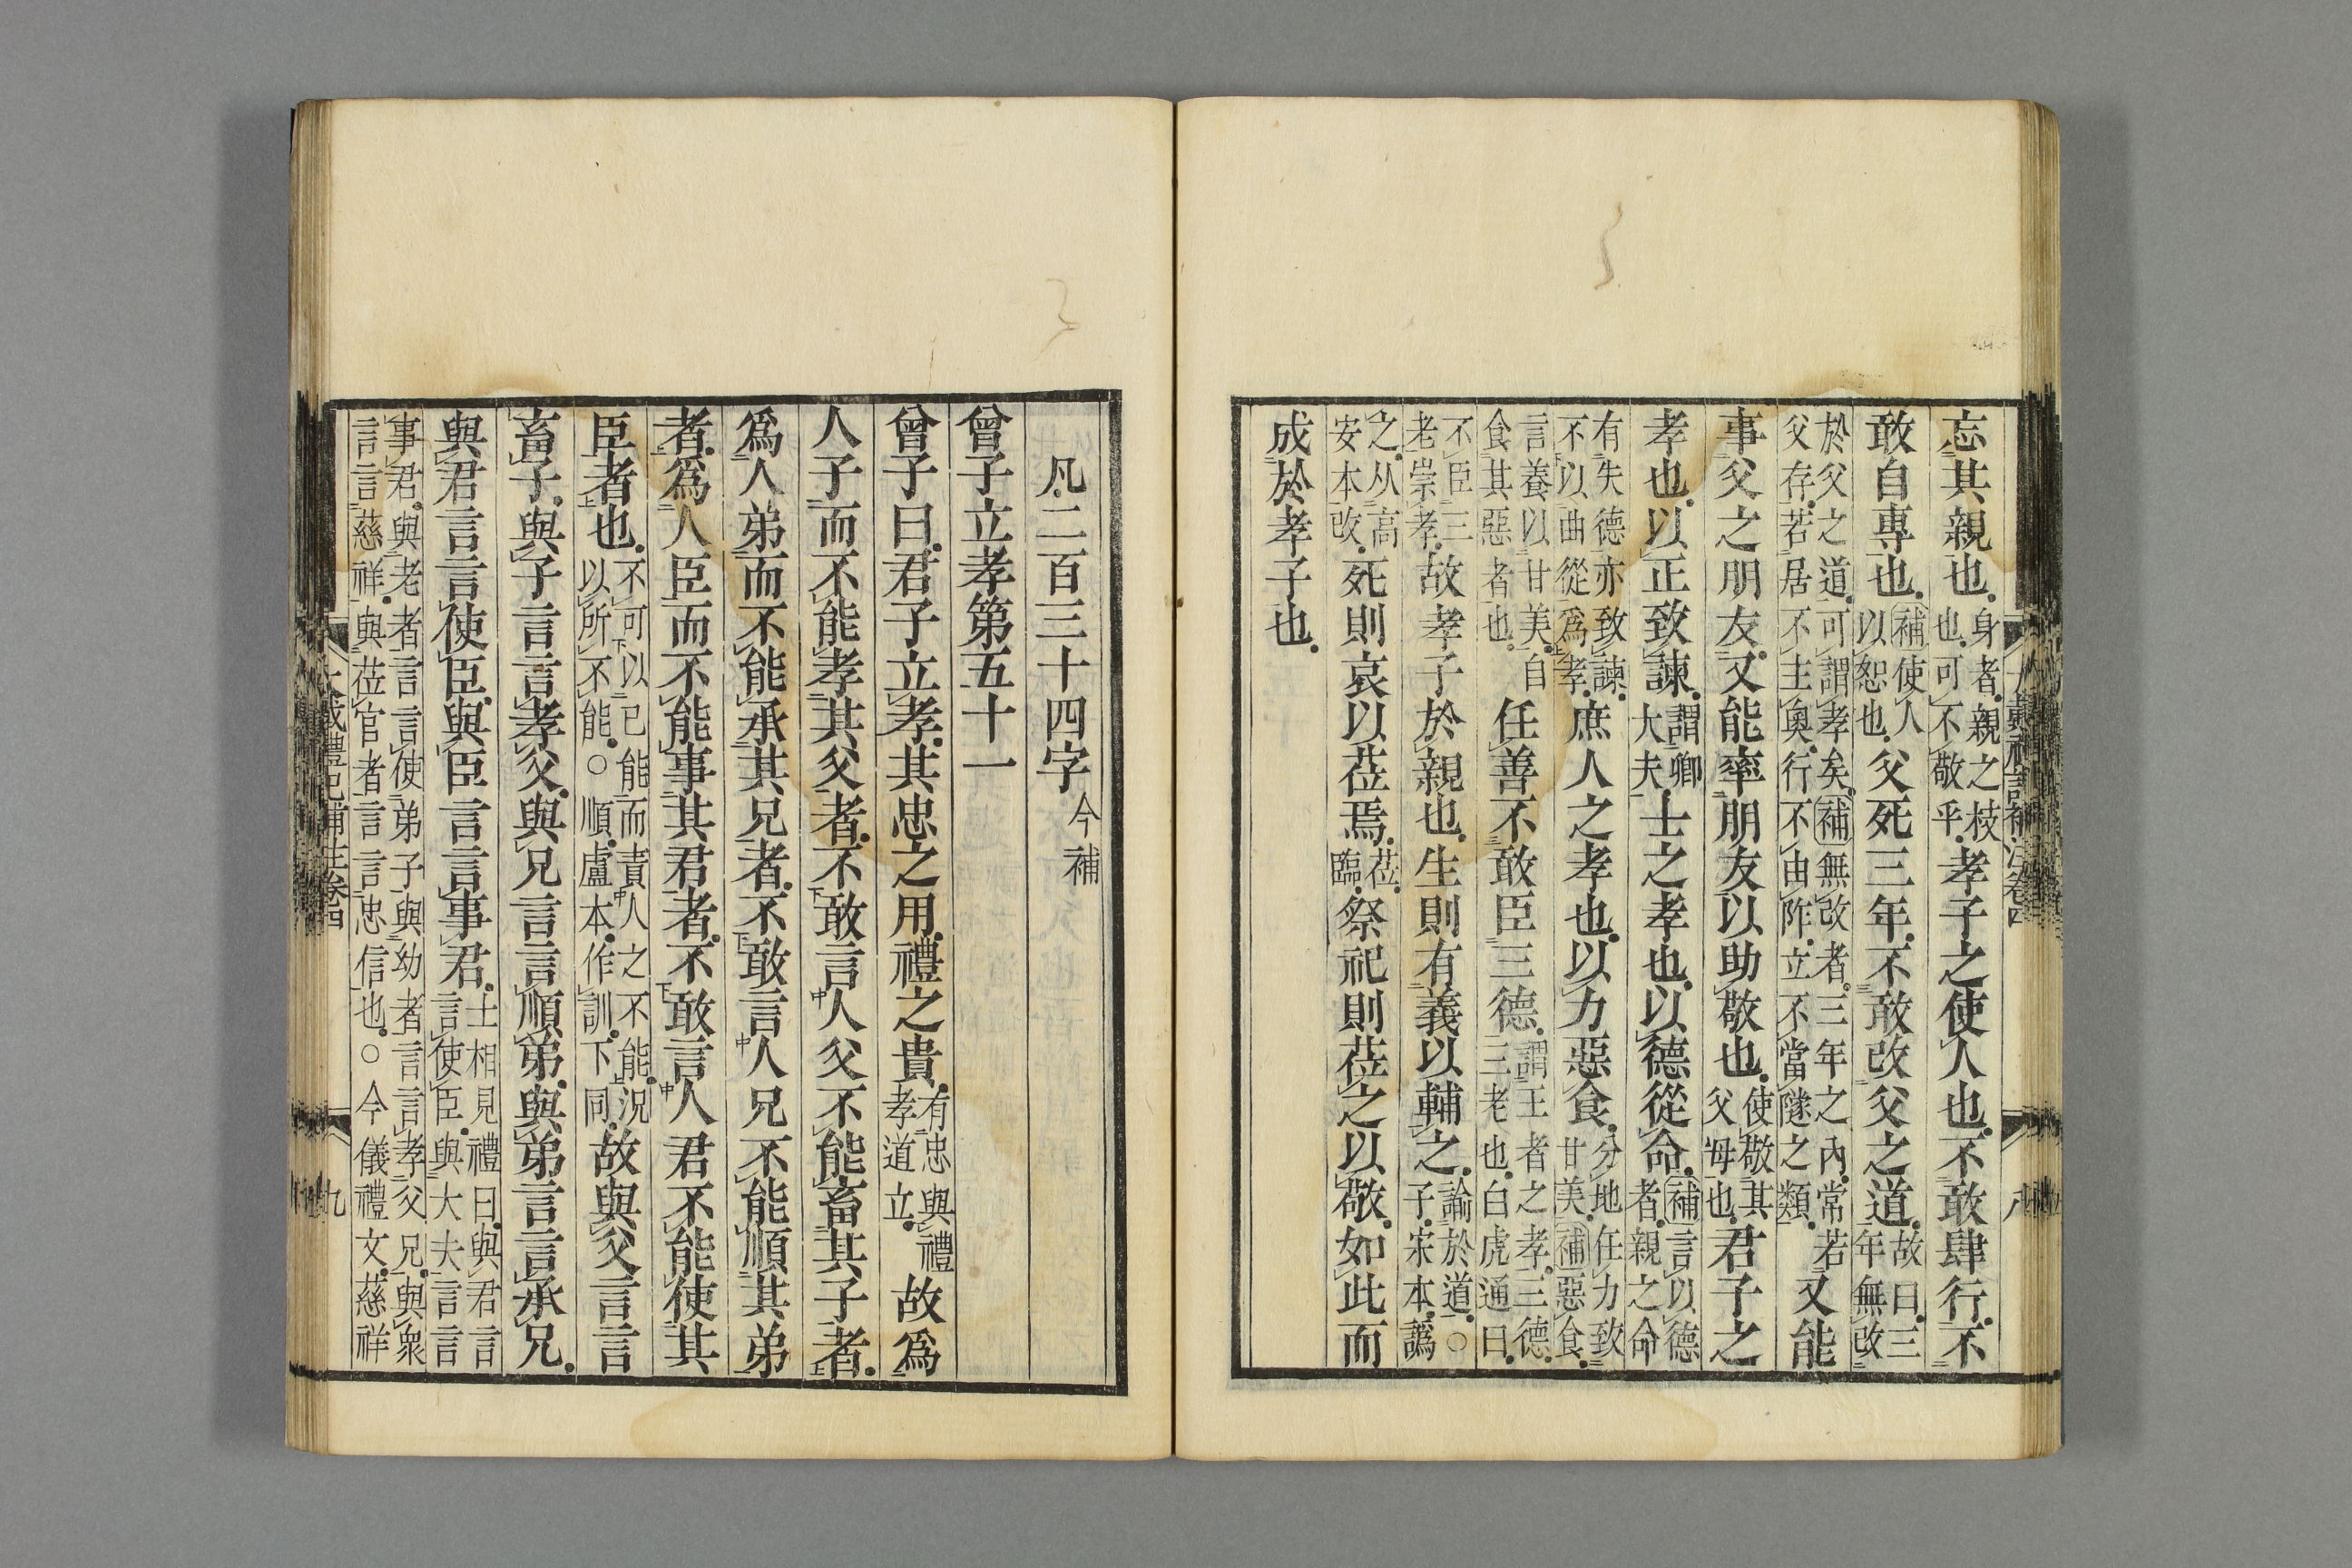 忘其親也。身者。親之枝也。可不敬乎。孝子之使人也。不敢肆行。不
敢自專也。補使人以恕也。父死三年。不敢改父之道。故曰。三年無改
於父之道。可謂孝矣。補無改者。三年之內。常若父存。若居不主奧。行不由阼。立不當隧之類。又能
事父之朋友。又能率朋友以助敬也。使敬其父母也。君子之
孝也。以正致諫。謂卿大夫。士之孝也。以德從命。補言以德者。親之命
有失德亦致諫。不以曲從爲孝。庶人之孝也。以力惡食。分地任力致甘美。補惡食。
言養以甘美。自食其惡者也。任善不敢臣三德。謂王者之孝。三德。三老也。白虎通曰。
不臣三老崇孝。故孝子於親也。生則有義以輔之。諭於道。○子。宋本。譌
之。从高安本改。死則哀以莅焉。莅。臨。祭祀則莅之以敬。如此而
成於孝子也。
凡二百三十四字今補
曾子立孝第五十一
曾子曰。君子立孝。其忠之用。禮之貴。有忠與禮孝道立。故爲
人子而不能孝其父者。不敢言人父不能畜其子者。
爲人弟而不能承其兄者。不敢言人兄不能順其弟
者。爲人臣而不能事其君者。不敢言人君不能使其
臣者也。不可以己能而責人之不能。況以所不能。○順。盧本。作訓。下同。故與父言言
畜子。與子言言孝父。與兄言言順弟。與弟言言承兄。
與君言言使臣。與臣言言事君。士相見禮曰。與君言言使臣。與大夫言言
事君。與老者言言使弟子與幼者言言孝父兄。與衆言言慈祥。與莅官者言言忠信也。○今儀禮文。慈祥
大戴禮記補注卷四
九